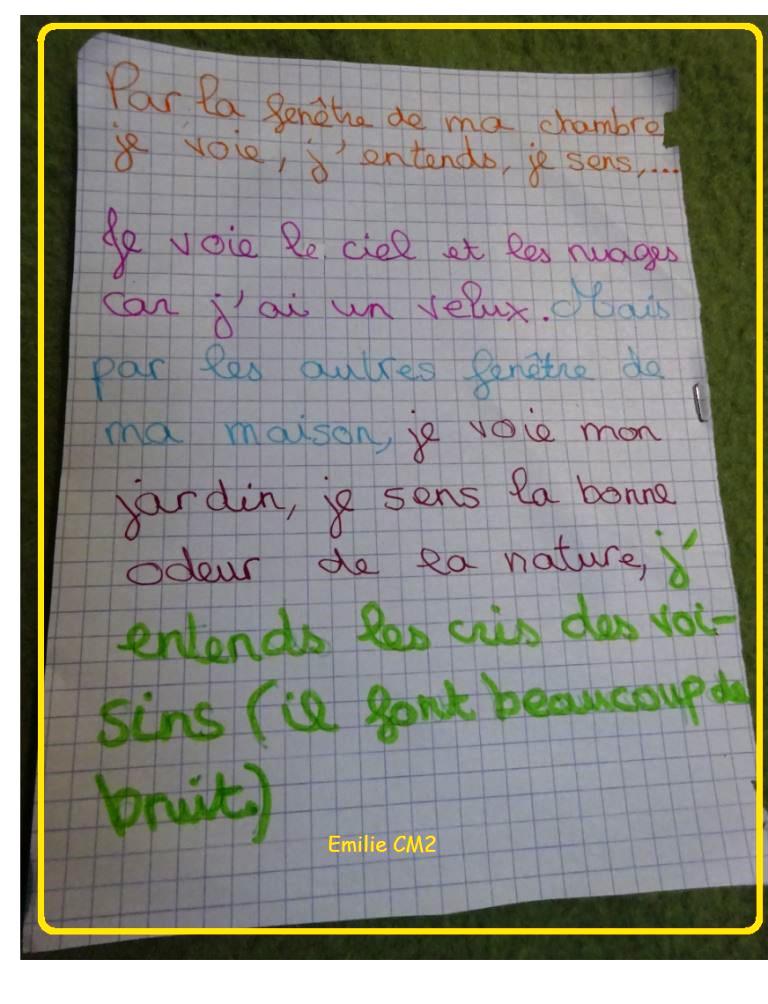 Par la fenêtre de ma chambre
je voie, j'entends, je sens,...
Je voie le ciel et les nuages
car j'ai un velux. Mais
par les autres fenêtre de
ma maison, je voie mon
jardin, je sens la bonne
odeur de la nature, j'
entends les cris des voi-
sins (il font beaucoup de
bruit.)
Emilie CM2